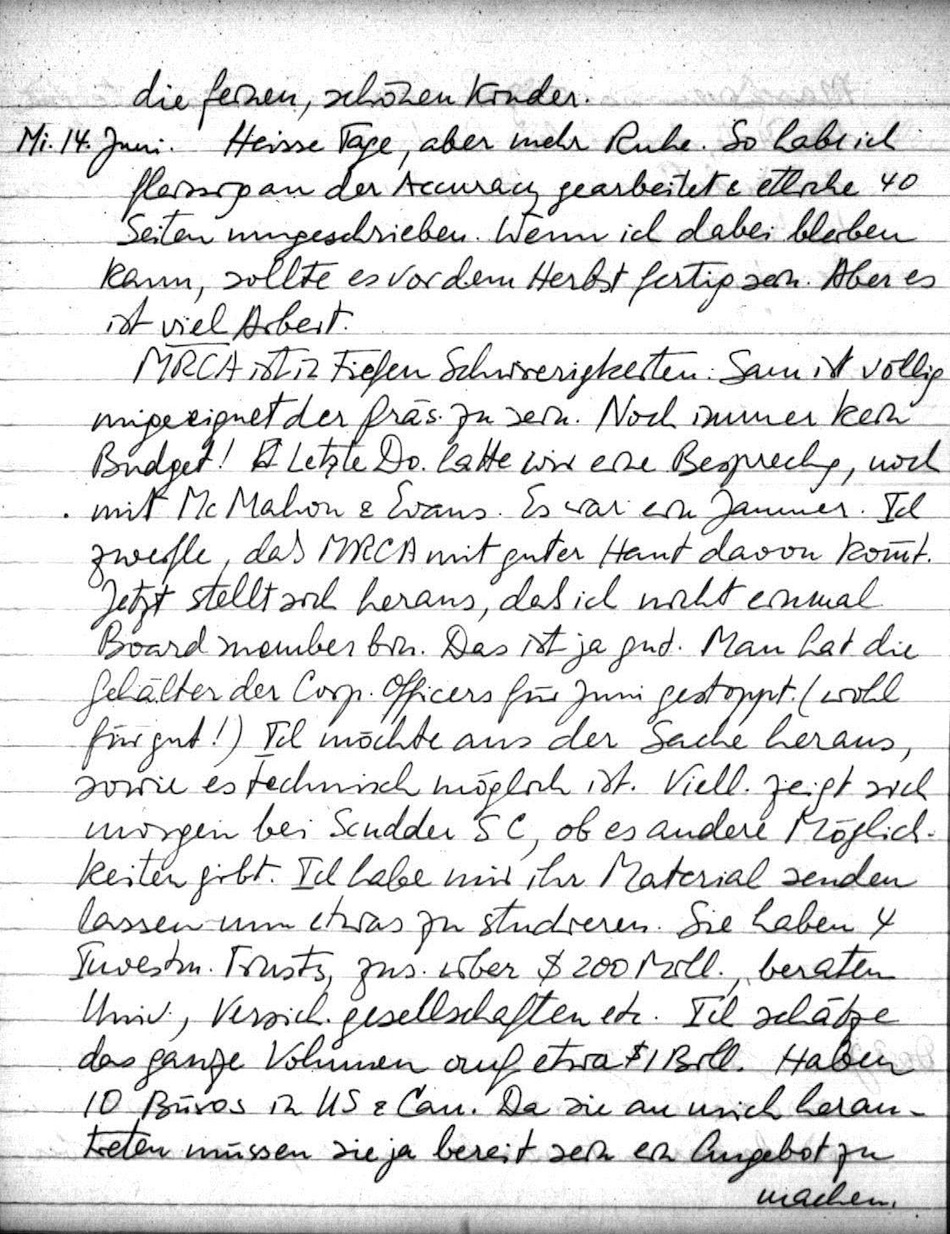 die feinen, schönen Kinder.
Mi. 14. Juni. Heisse Tage, aber mehr Ruhe. So habe ich
fleissig an der Accuracy gearbeitet & etliche 40
Seiten umgeschrieben. Wenn ich dabei bleiben
kann, sollte es vor dem Herbst fertig sein. Aber es
ist viel Arbeit.
MRCA ist in tiefen Schwierigkeiten. Sam ist völlig
ungeeignet der Präs. zu sein. Noch immer kein
Budget! Letzte Do. hatte wir eine Besprechg, noch
mit McMahon & Evans. Es war ein Jammer. Ich
zweifle, daß MRCA mit guter Haut davon kom̄t.
Jetzt stellt sich heraus, daß ich nicht einmal
Board member bin. Das ist ja gut. Man hat die
Gehälter der Corp. Officers für Juni gestoppt. (wohl
für gut!) Ich möchte aus der Sache heraus,
sowie es technisch möglich ist. Viell. zeigt sich
morgen bei Scudder S C, ob es andere Möglich-
keiten gibt. Ich habe mir ihr Material senden
lassen um etwas zu studieren. Sie haben 4
Investm. Trusts, zus. über $ 200 Mill., beraten
Univ., Versich. gesellschaften etc. Ich schätze
das ganze Volumen auf etwa $ 1 Bill. Haben
10 Büros in US & Can. Da sie an mich heran-
treten müssen sie ja bereit sein ein Angebot zu
machen.